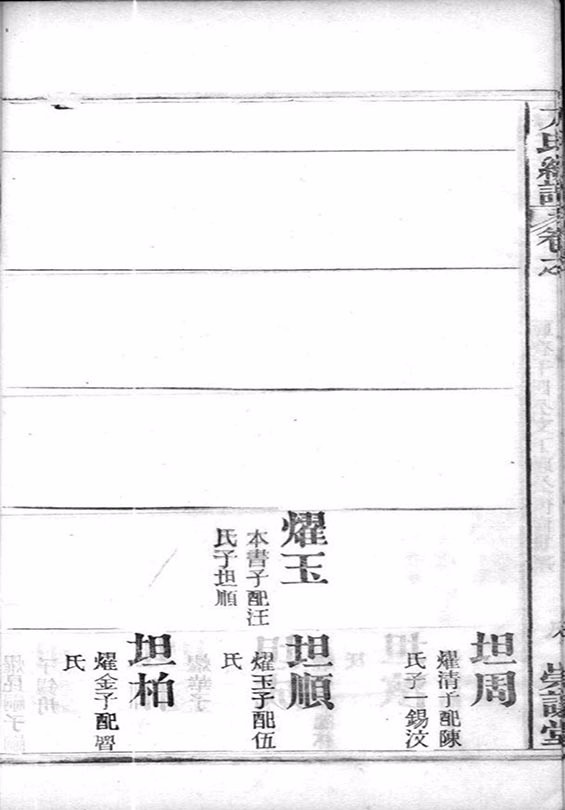 方氏總譜
崇讓堂
燿玉
本書子配汪
氏子坦順
坦周
燿清子配陳
氏子一錫汶
坦順
燿玉子配伍
氏
坦柏
燿金子配習
氏